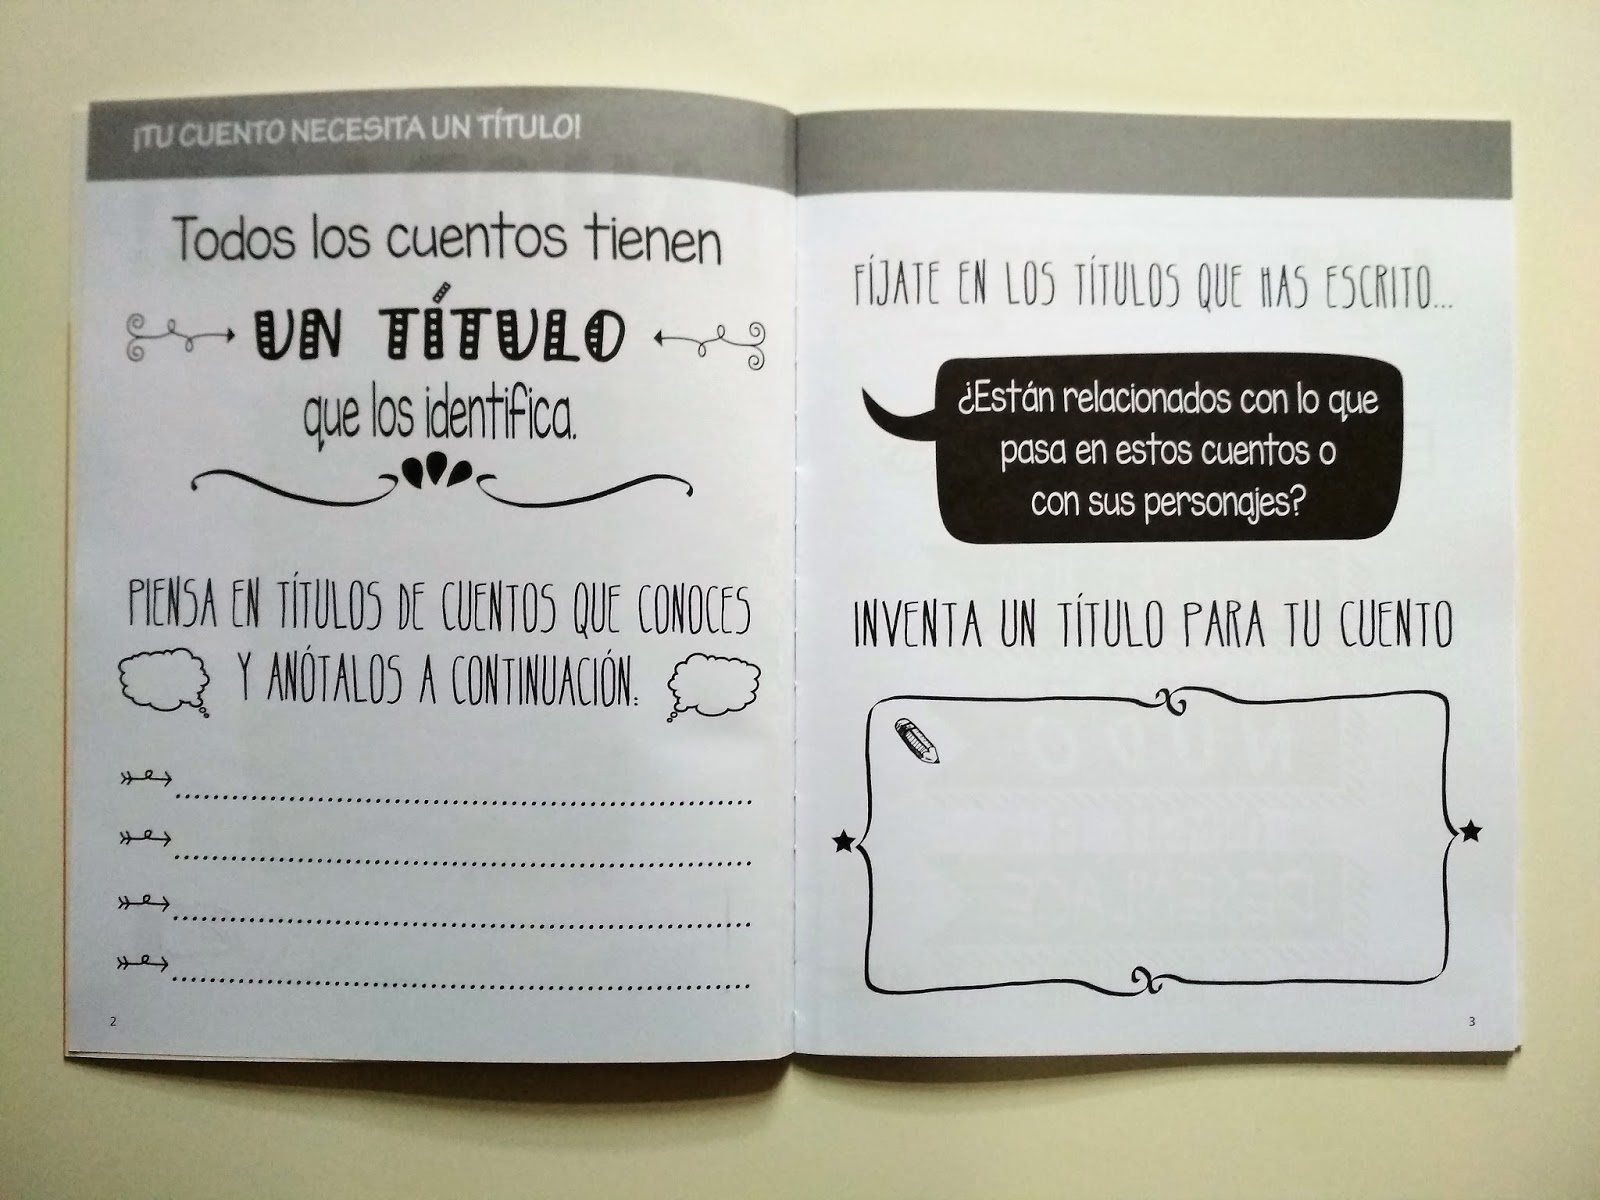 ¡TU CUENTO NECESITA UN TÍTULO!
Todos los cuentos tienen
UN TÍTULO
que los identifica.
PIENSA EN TÍTULOS DE CUENTOS QUE CONOCES
Y ANÓTALOS A CONTINUACIÓN:
2
FÍJATE EN LOS TÍTULOS QUE HAS ESCRITO...
¿Están relacionados con lo que
pasa en estos cuentos o
con sus personajes?
INVENTA UN TÍTULO PARA TU CUENTO
3